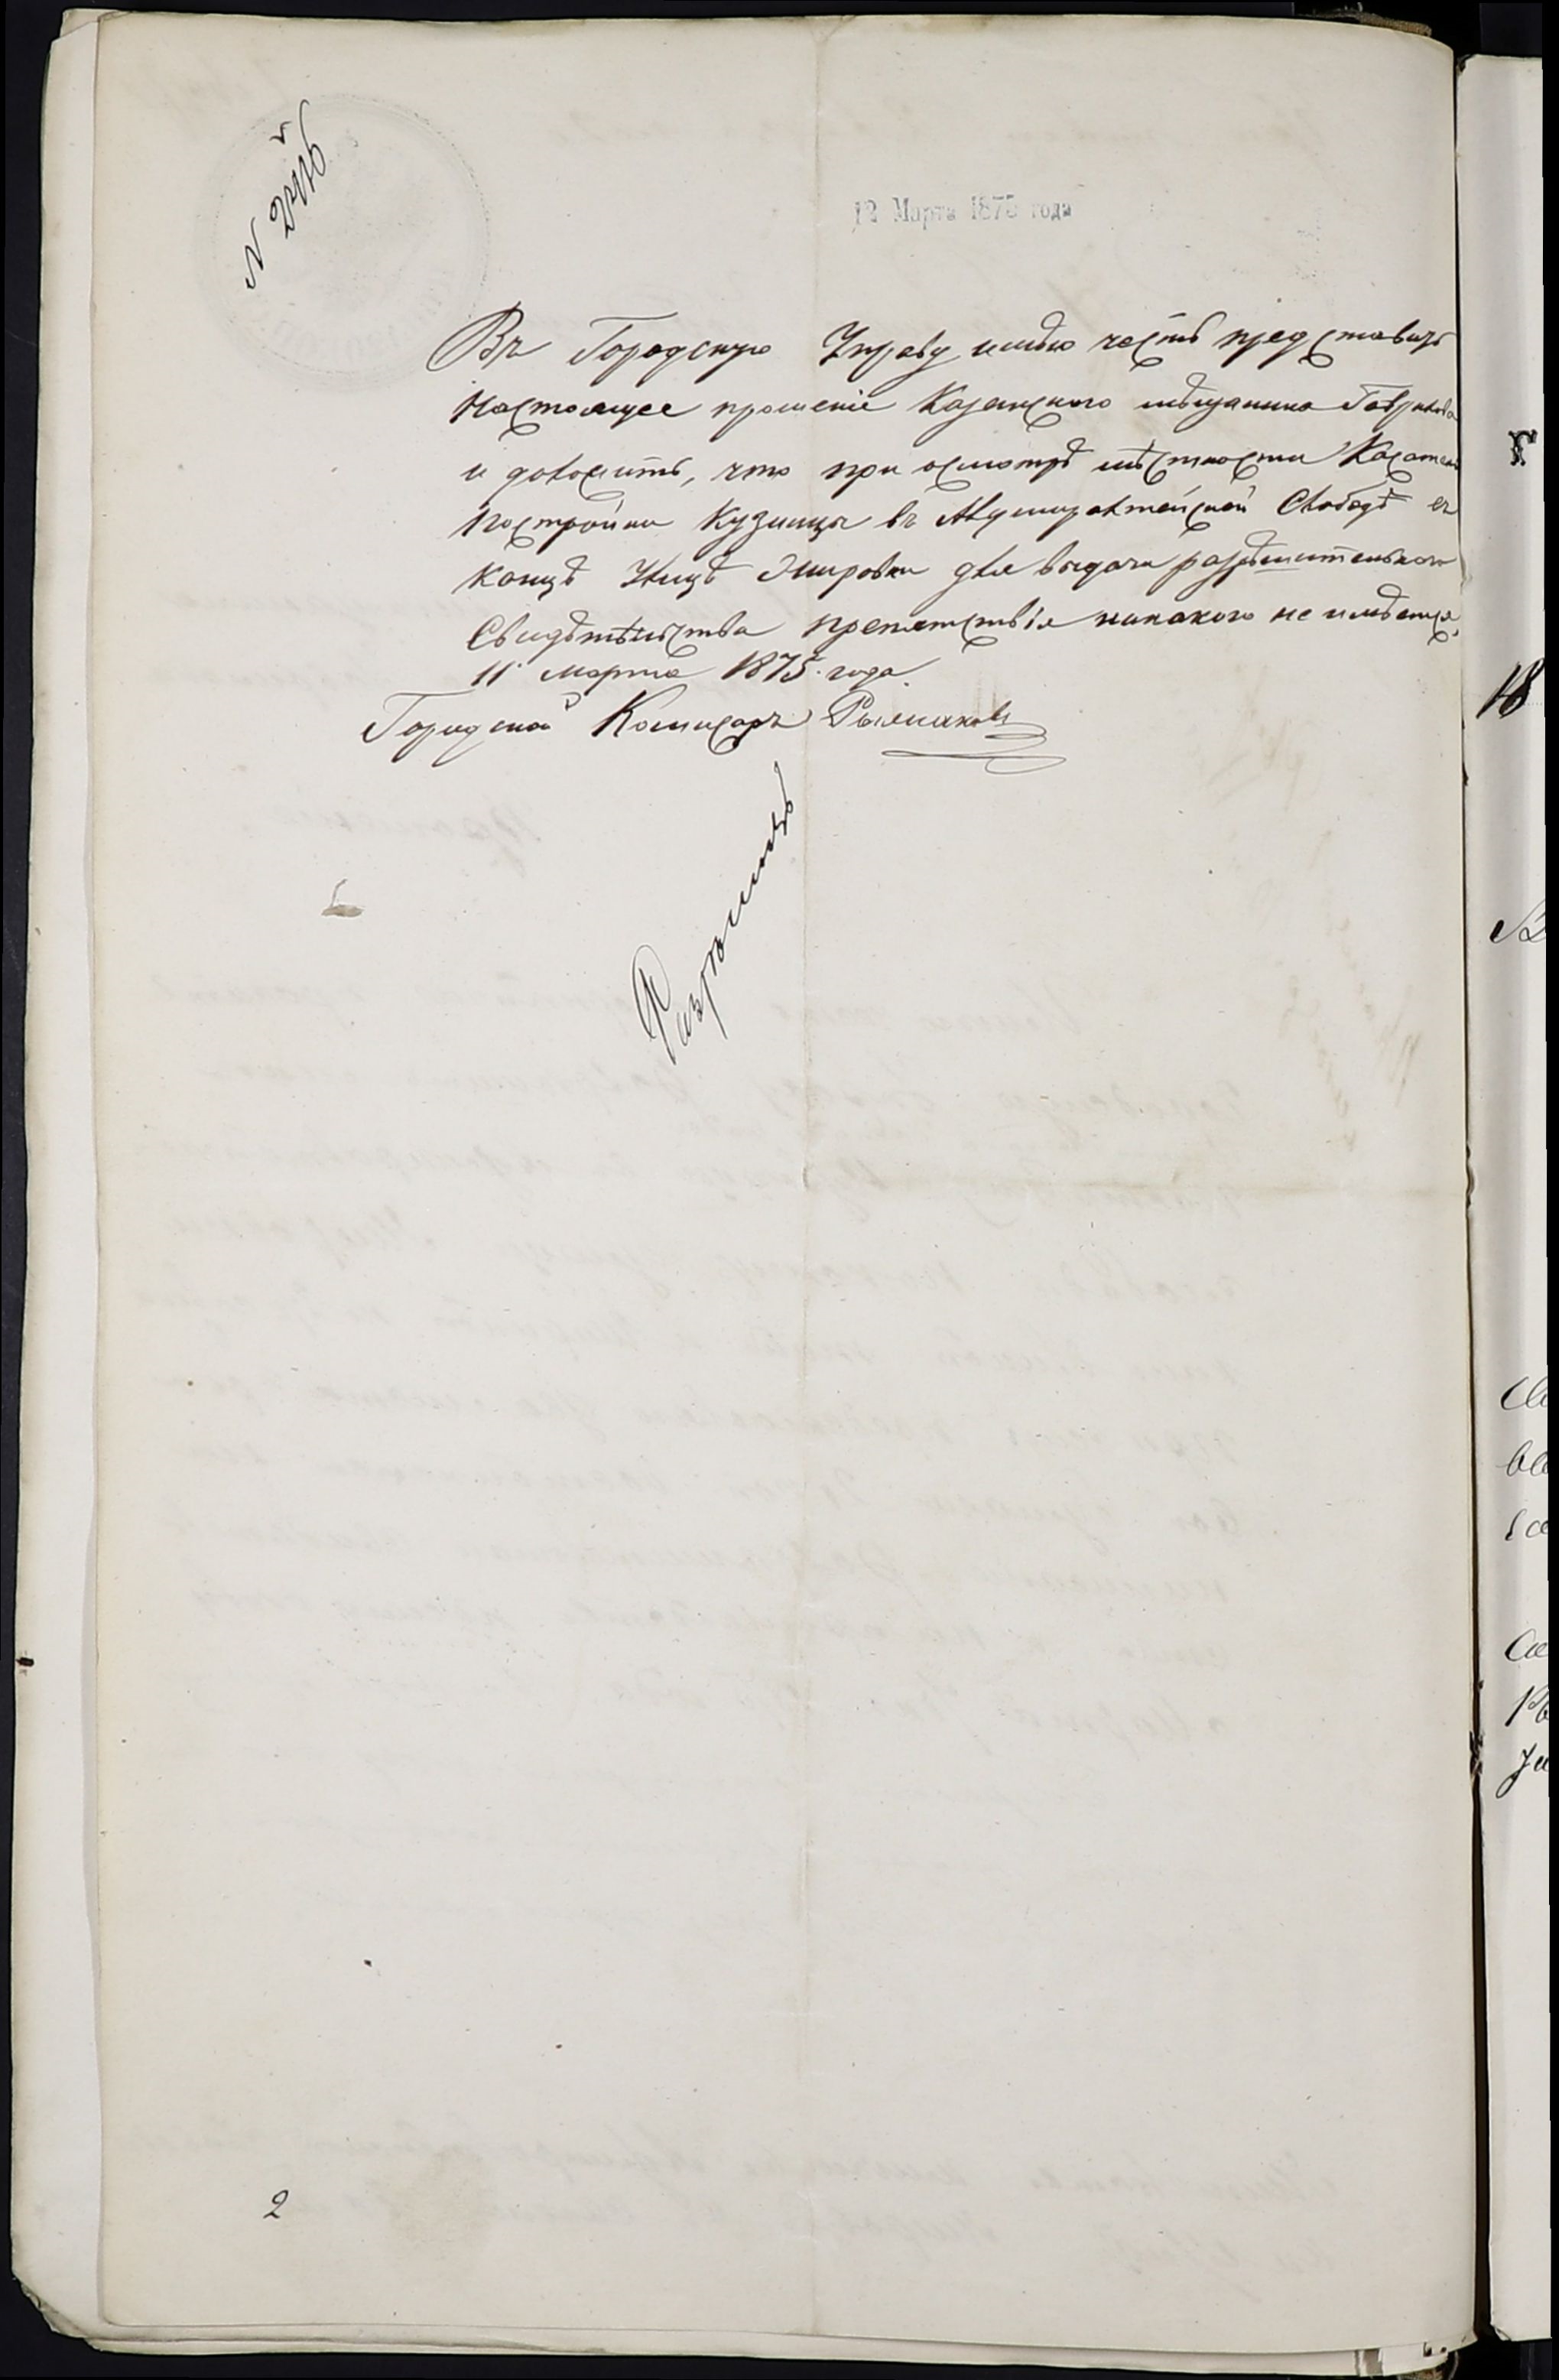 12 Марта 1875 года
Въ Городскую Управу имѣю честь представить
настоящее прошеніе Казанскаго мѣщанина
и доложить, что при осмотрѣ мѣстности
постройки Кузницы въ Адмиралтейской Слободѣ въ
концѣ Улицѣ для выдачи разрѣшительнаго
Свидѣтельства препятствія никакого не имѣется,
11 марта 1875 года
Городской Комисаръ
Разрѣшить
2